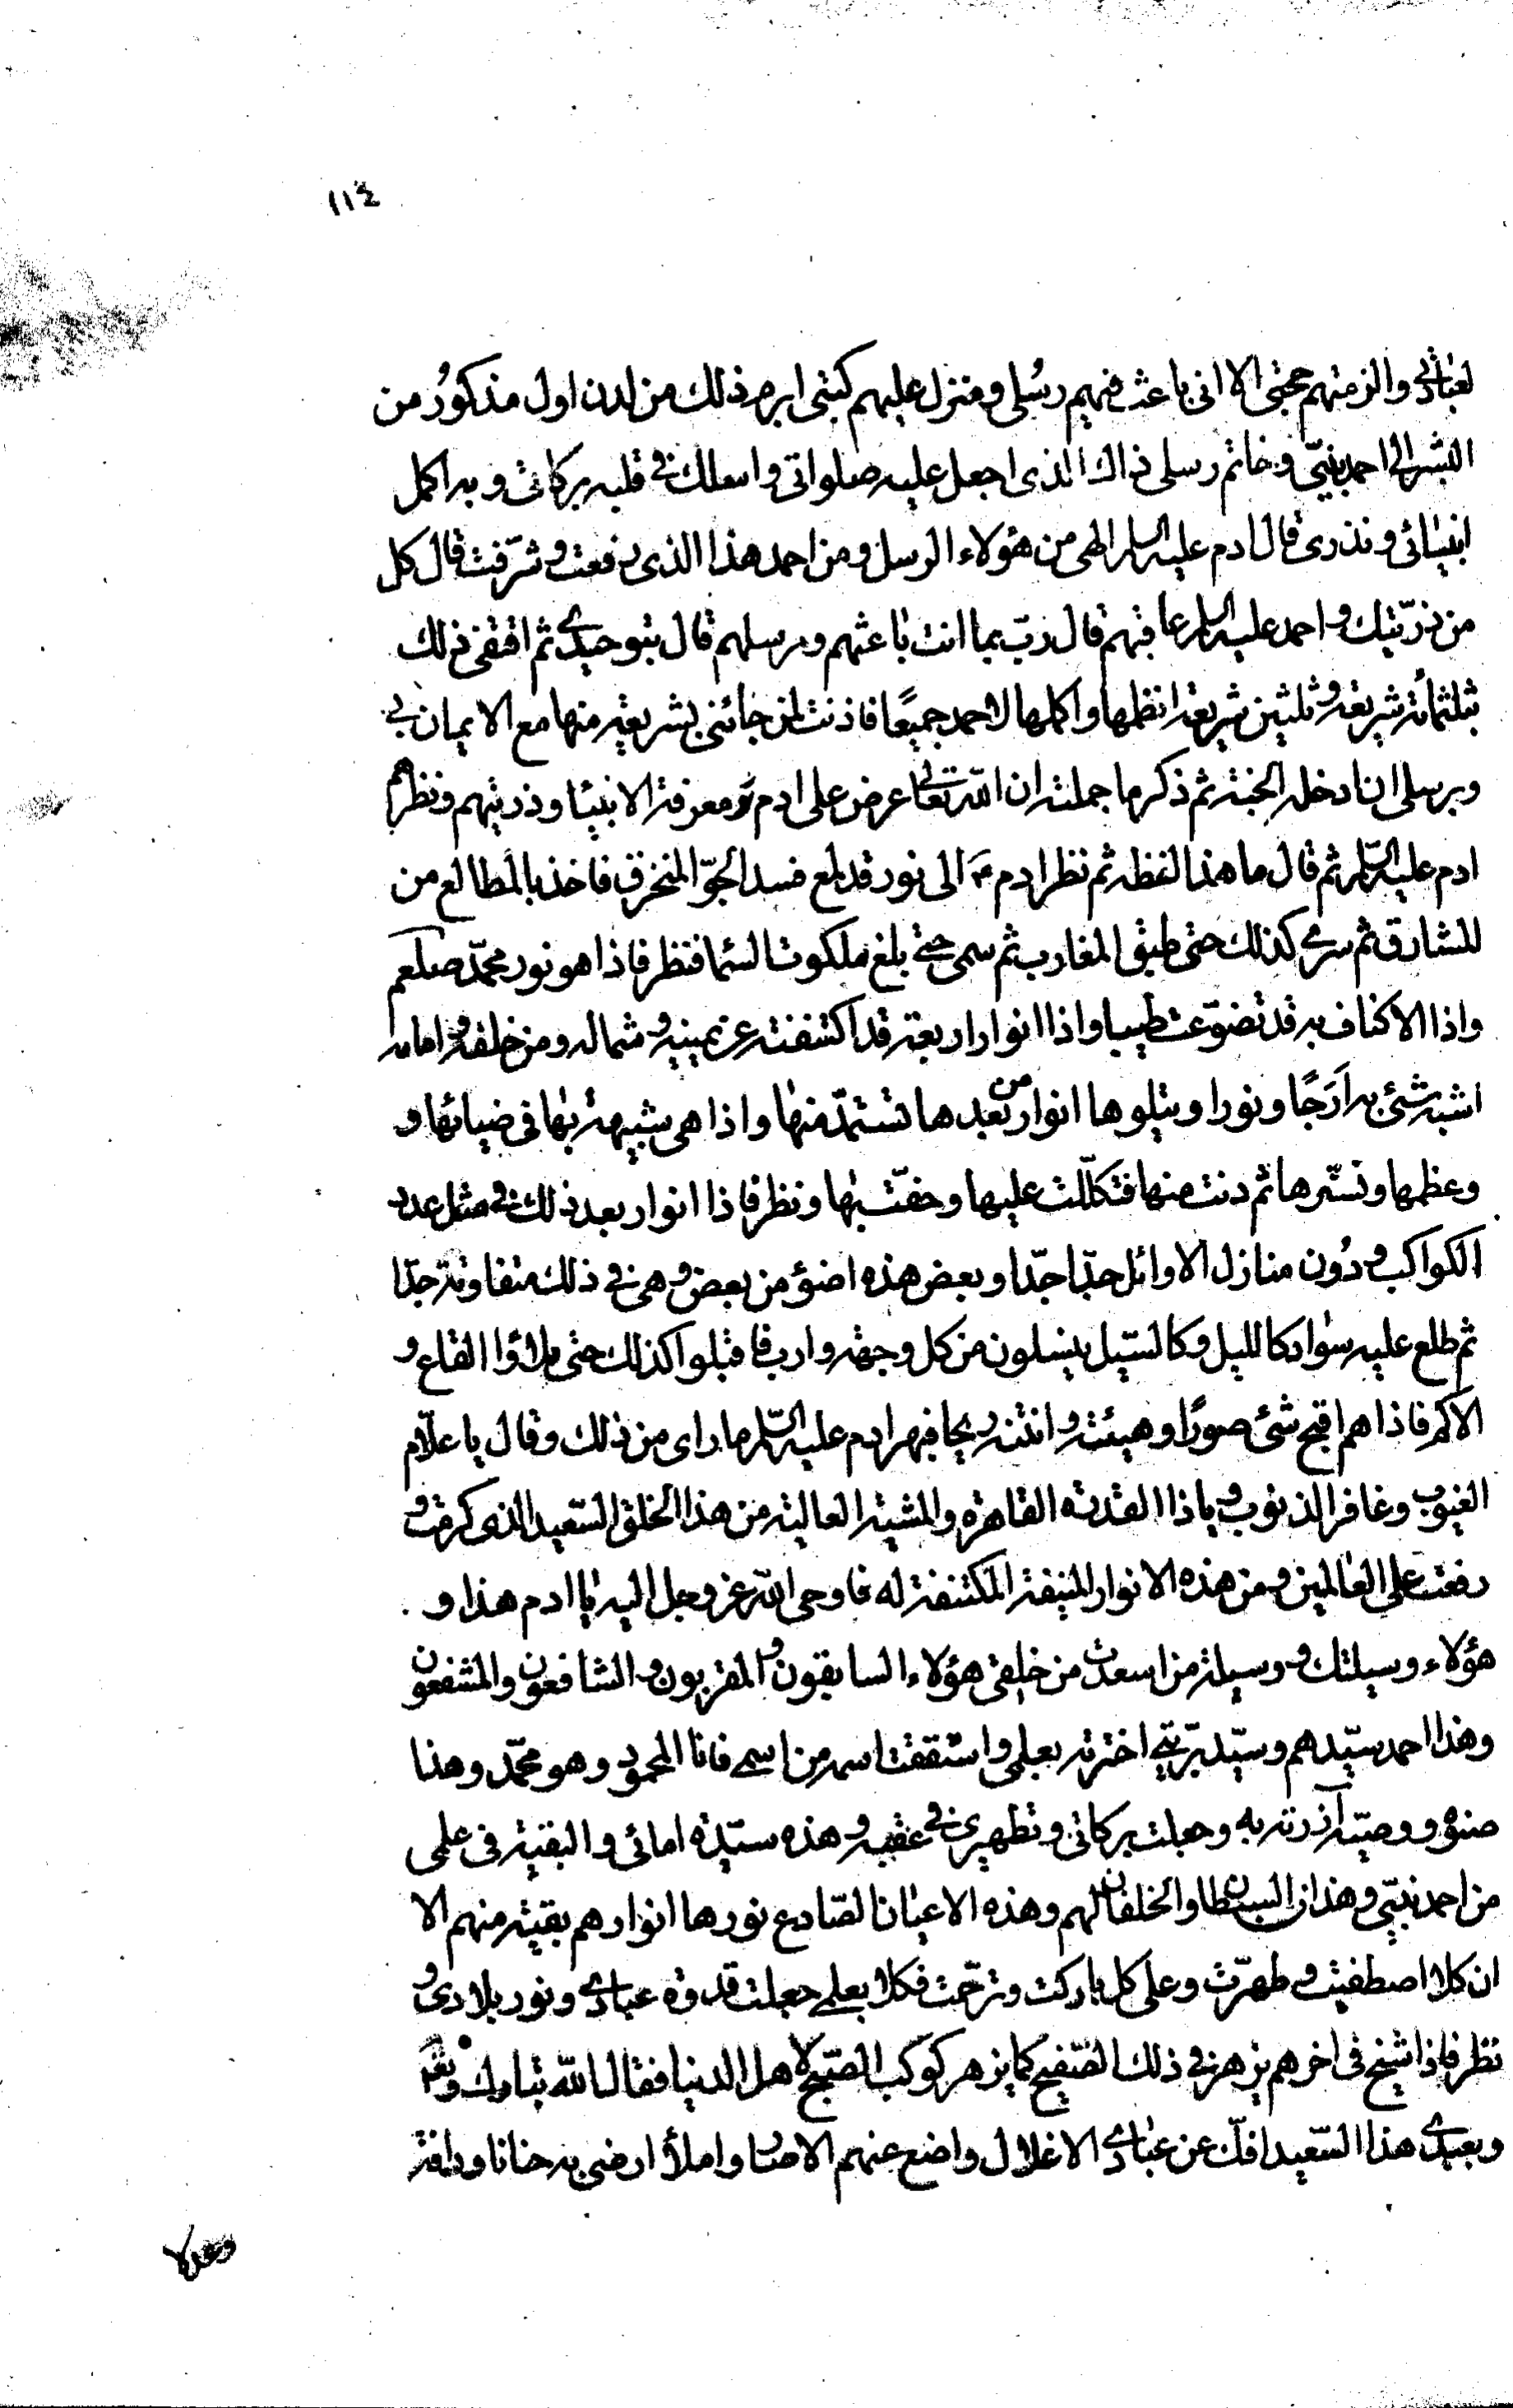 ١١٤
لعبادي والزمتهم حجتي الا اني باعث فيهم رسُلي ومنزل عليهم كتبي ابرم ذلك من لدن اول مذكوُر من
البشر الى احمد نبيّي وخاتم رسلي ذاك الذي اجعل عليه صلواتي واسلك في قلبه بركاتي وبه اكمل
انبيائي ونذري قال ادم عليه السلم الهي من هؤلاء الرسل ومن احمد هذا الذي رفعت وشرّفت قال كل
من ذرّيتك واحمد عليه السلم عاقبهم قال ربّ بما انت باعثهم ومرسلهم قال بتوحيدي ثم اقفي ذلك
بثلثمائة شريعة وثلثين شريعة انظمها واكملها لاحمد جميعًا فاذنت لمن جائني بشريعة منها مع الايمان بي
وبرسلي ان ادخله الجنة ثم ذكر ما جملته ان الله تعالى عرض على ادم ع معرفة الانبيا وذريتهم ونظرهم
ادم عليه السّلم ثم قال ما هذا لفظه ثم نظر ادم ع الى نور قد لمع فسد الجوّ المنخرق فاخذ بالمطالع من
المشارق ثم سرى كذلك حتى طبق المغارب ثم سمى حتى بلغ ملكوت السما فنظر فاذا هو نور محمّد صلعم
واذا الاكناف به قد تضوّعت طيبا واذا انوار اربعة قد اكتنفته عن يمينه وشماله ومن خلفه وامامه
اشبه شئ به اَرَجًا ونورا ويتلوها انوار من بعدها تستمدّ منها واذا هي شبيهة بها في ضيائها و
وعظمها ونشرها ثم دنت منها فتكلّلت عليها وحفّت بها ونظر فاذا انوار بعد ذلك في مثل عدد
الكواكب ودُون منازل الاوائل جدّا جدّا وبعض هذه اضؤ من بعض وهي في ذلك متفاوتة جدّا
ثم طلع عليه سواد كالليل وكالسّيل ينسلون من كل وجهة وارب فاقبلوا كذلك حتى ملاؤا القاع و
الاكم فاذا هم اقبح شئ صورًا وهيئة وانتنه ريحا فبهر ادم عليه السّلم ما راى من ذلك وقال يا علاّم
الغيوب وغافر الذنوب ويا ذا القدرة القاهرة والمشية العالية من هذا الخلق السّعيد الذي كرمت و
رفعت على العالمين ومن هذه الانوار المنيفة المكتنفة له فاوحى الله عز وجل اليه يا ادم هذا و
هؤلاء وسيلتك ووسيلة من اسعدت من خلقي هؤلاء السابقون والمقربون والشافعون والمشفعون
وهذا احمد سيّدهم وسيّد بريّتي اخترته بعلمي واشتققت اسمه من اسمي فانا المحمود وهو محمّد وهذا
صنوه ووصيّه آزرته به وجعلت بركاتي وتطهيري في عقبه وهذه سيّدة امائي والبقية في علمي
من احمد نبيّي وهذان السبطان والخلفان لهم وهذه الاعيان الصّادع نورها انوارهم بقية منهم الا
ان كلا اصطفيت وطهّرت وعلى كل باركت وترحّمت فكلا بعلمي جعلت قدوة عبادي ونور بلادي و
نظر فاذا شيخ في اخرهم يزهر في ذلك الصّفيح كما يزهر كوكب الصّبح لاهل الدنيا فقال الله تبارك وتعالى
وبعبدي هذا السّعيد افكّ عن عبادي الاغلال واضع عنهم الاصار واملأ ارضي به حنانا ورافة
وعدلا